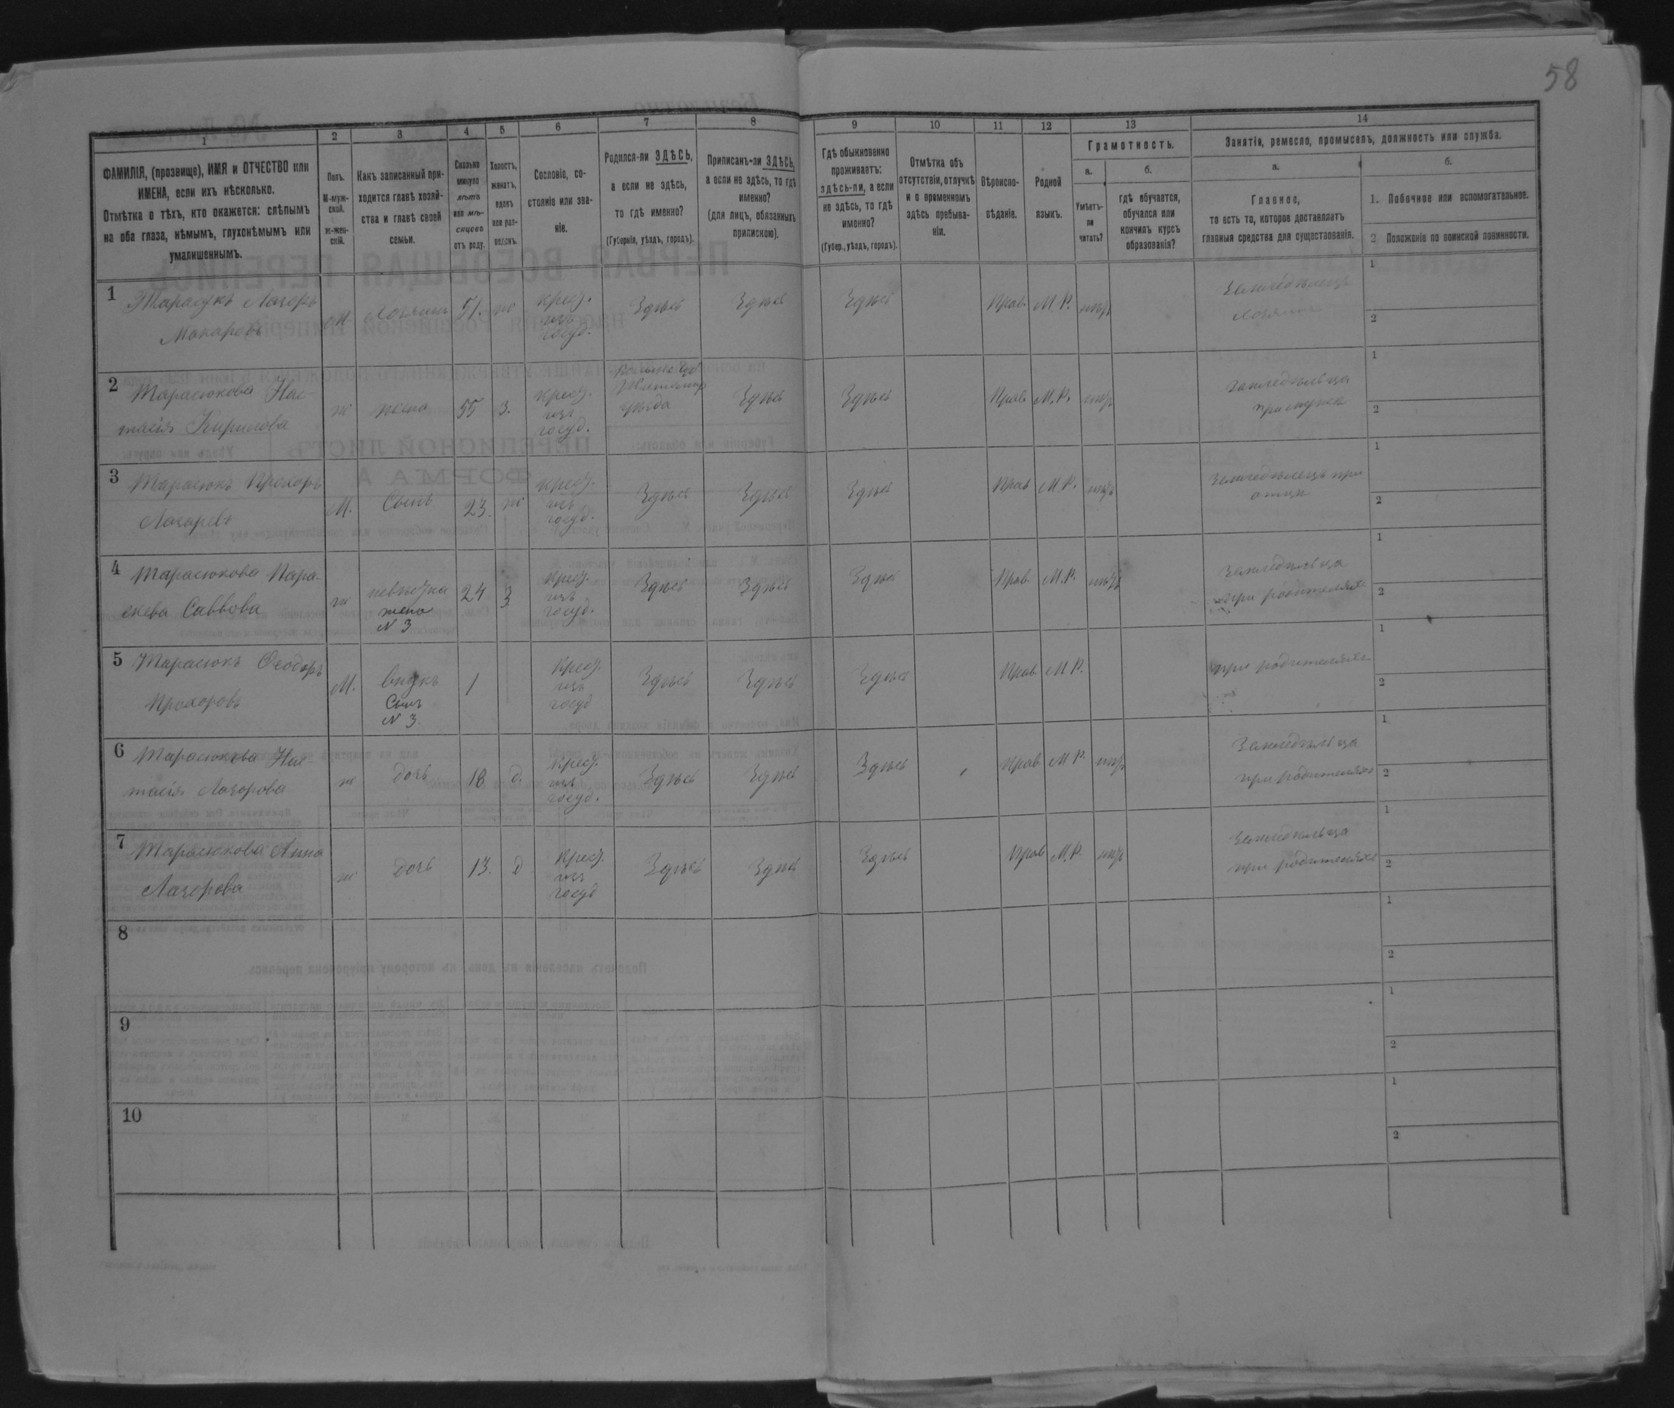 58
1 2 3 4 5 6 7 8 9 10 11 12 13 14
ФАМИЛІЯ, (прозвище), ИМЯ и ОТЧЕСТВО или
ИМЕНА, если ихъ нѣсколько.
Отмѣтка о тѣхъ, кто окажется: слѣпымъ
на оба глаза, нѣмымъ, глухонѣмымъ или
умалишеннымъ.
Полъ.
М-муж-
ской.
ж-жен-
скій.
Какъ записанный при-
ходится главѣ хозяй-
ства и главѣ своей
семьи.
Сколько
минуло
лѣтъ
или мѣ-
сяцевъ
отъ роду.
Холостъ,
женатъ,
вдовъ
или раз-
веденъ.
Сословіе, со-
стояніе или зва-
ніе.
Родился-ли ЗДѢСЬ,
а если не здѣсь,
то гдѣ именно?
(Губернія, уѣздъ, городъ).
Приписанъ-ли ЗДѢСЬ,
а если не здѣсь, то гдѣ
именно?
(для лицъ, обязанныхъ
припискою).
Гдѣ обыкновенно
проживаетъ:
здѣсь-ли, а если
не здѣсь, то гдѣ
именно?
(Губер., уѣздъ, городъ).
Отмѣтка объ
отсутствіи, отлучкѣ
и о временномъ
здѣсь пребыва-
ніи.
Вѣроиспо-
вѣданіе.
Родной
языкъ.
Грамотность.
а.
Умѣетъ-
ли
читать?
б.
гдѣ обучается,
обучался или
кончилъ курсъ
образованія?
Занятіе, ремесло, промыселъ, должность или служба.
а.
Главное,
то есть то, которое доставляетъ
главныя средства для существованія.
б.
1. Побочное или вспомогательное.
2 Положеніе по воинской повинности.
1
Тарасукъ Лазоръ
Макаровъ
м хозяинъ 51. ж
крест.
изъ
госуд.
Здѣсь Здѣсь Здѣсь Прав. М. Р.
Земледѣлецъ
хозяинъ
1
2
2
Тарасюкова Нас-
тасія Кирилова
ж жена 55 з.
крест.
изъ
госуд.
Житомир
уѣзда
Здѣсь Здѣсь Прав М. Р.
земледѣлица
при мужѣ
1
2
3
Тарасюкъ Прохоръ
Лазаревъ
М. Сынъ 23. ж
крест.
изъ
госуд.
Здѣсь Здѣсь Здѣсь Прав М. Р.
Земледѣлецъ при
отцѣ
1
2
4
Тарасюкова Пара-
скева Саввова
ж невѣстка
жена
N 3
24 з
крест.
изъ
госуд.
Здѣсь Здѣсь Здѣсь Прав. М. Р.
Земледѣлица
при родителяхъ
1
2
5
Тарасюкъ Ѳеодоръ
Прохоровъ
М. Внукъ
Сынъ
N 3.
1
Крест.
изъ
госуд
Здѣсь Здѣсь Здѣсь Прав М. Р.
при родителяхъ
1
2
6
Тарасюкова Нас
тасія Лазорова
ж дочь 18 д.
Крест.
изъ
госуд.
Здѣсь Здѣсь Здѣсь Прав М. Р.
Земледѣлица
при родителяхъ
1
2
7
Тарасюкова Анна
Лазорова
ж дочь 13. д
Крест.
изъ
госуд
Здѣсь Здѣсь Здѣсь Прав М. Р.
Земледѣлица
при родителяхъ
1
2
8
1
2
9
1
2
10
1
2